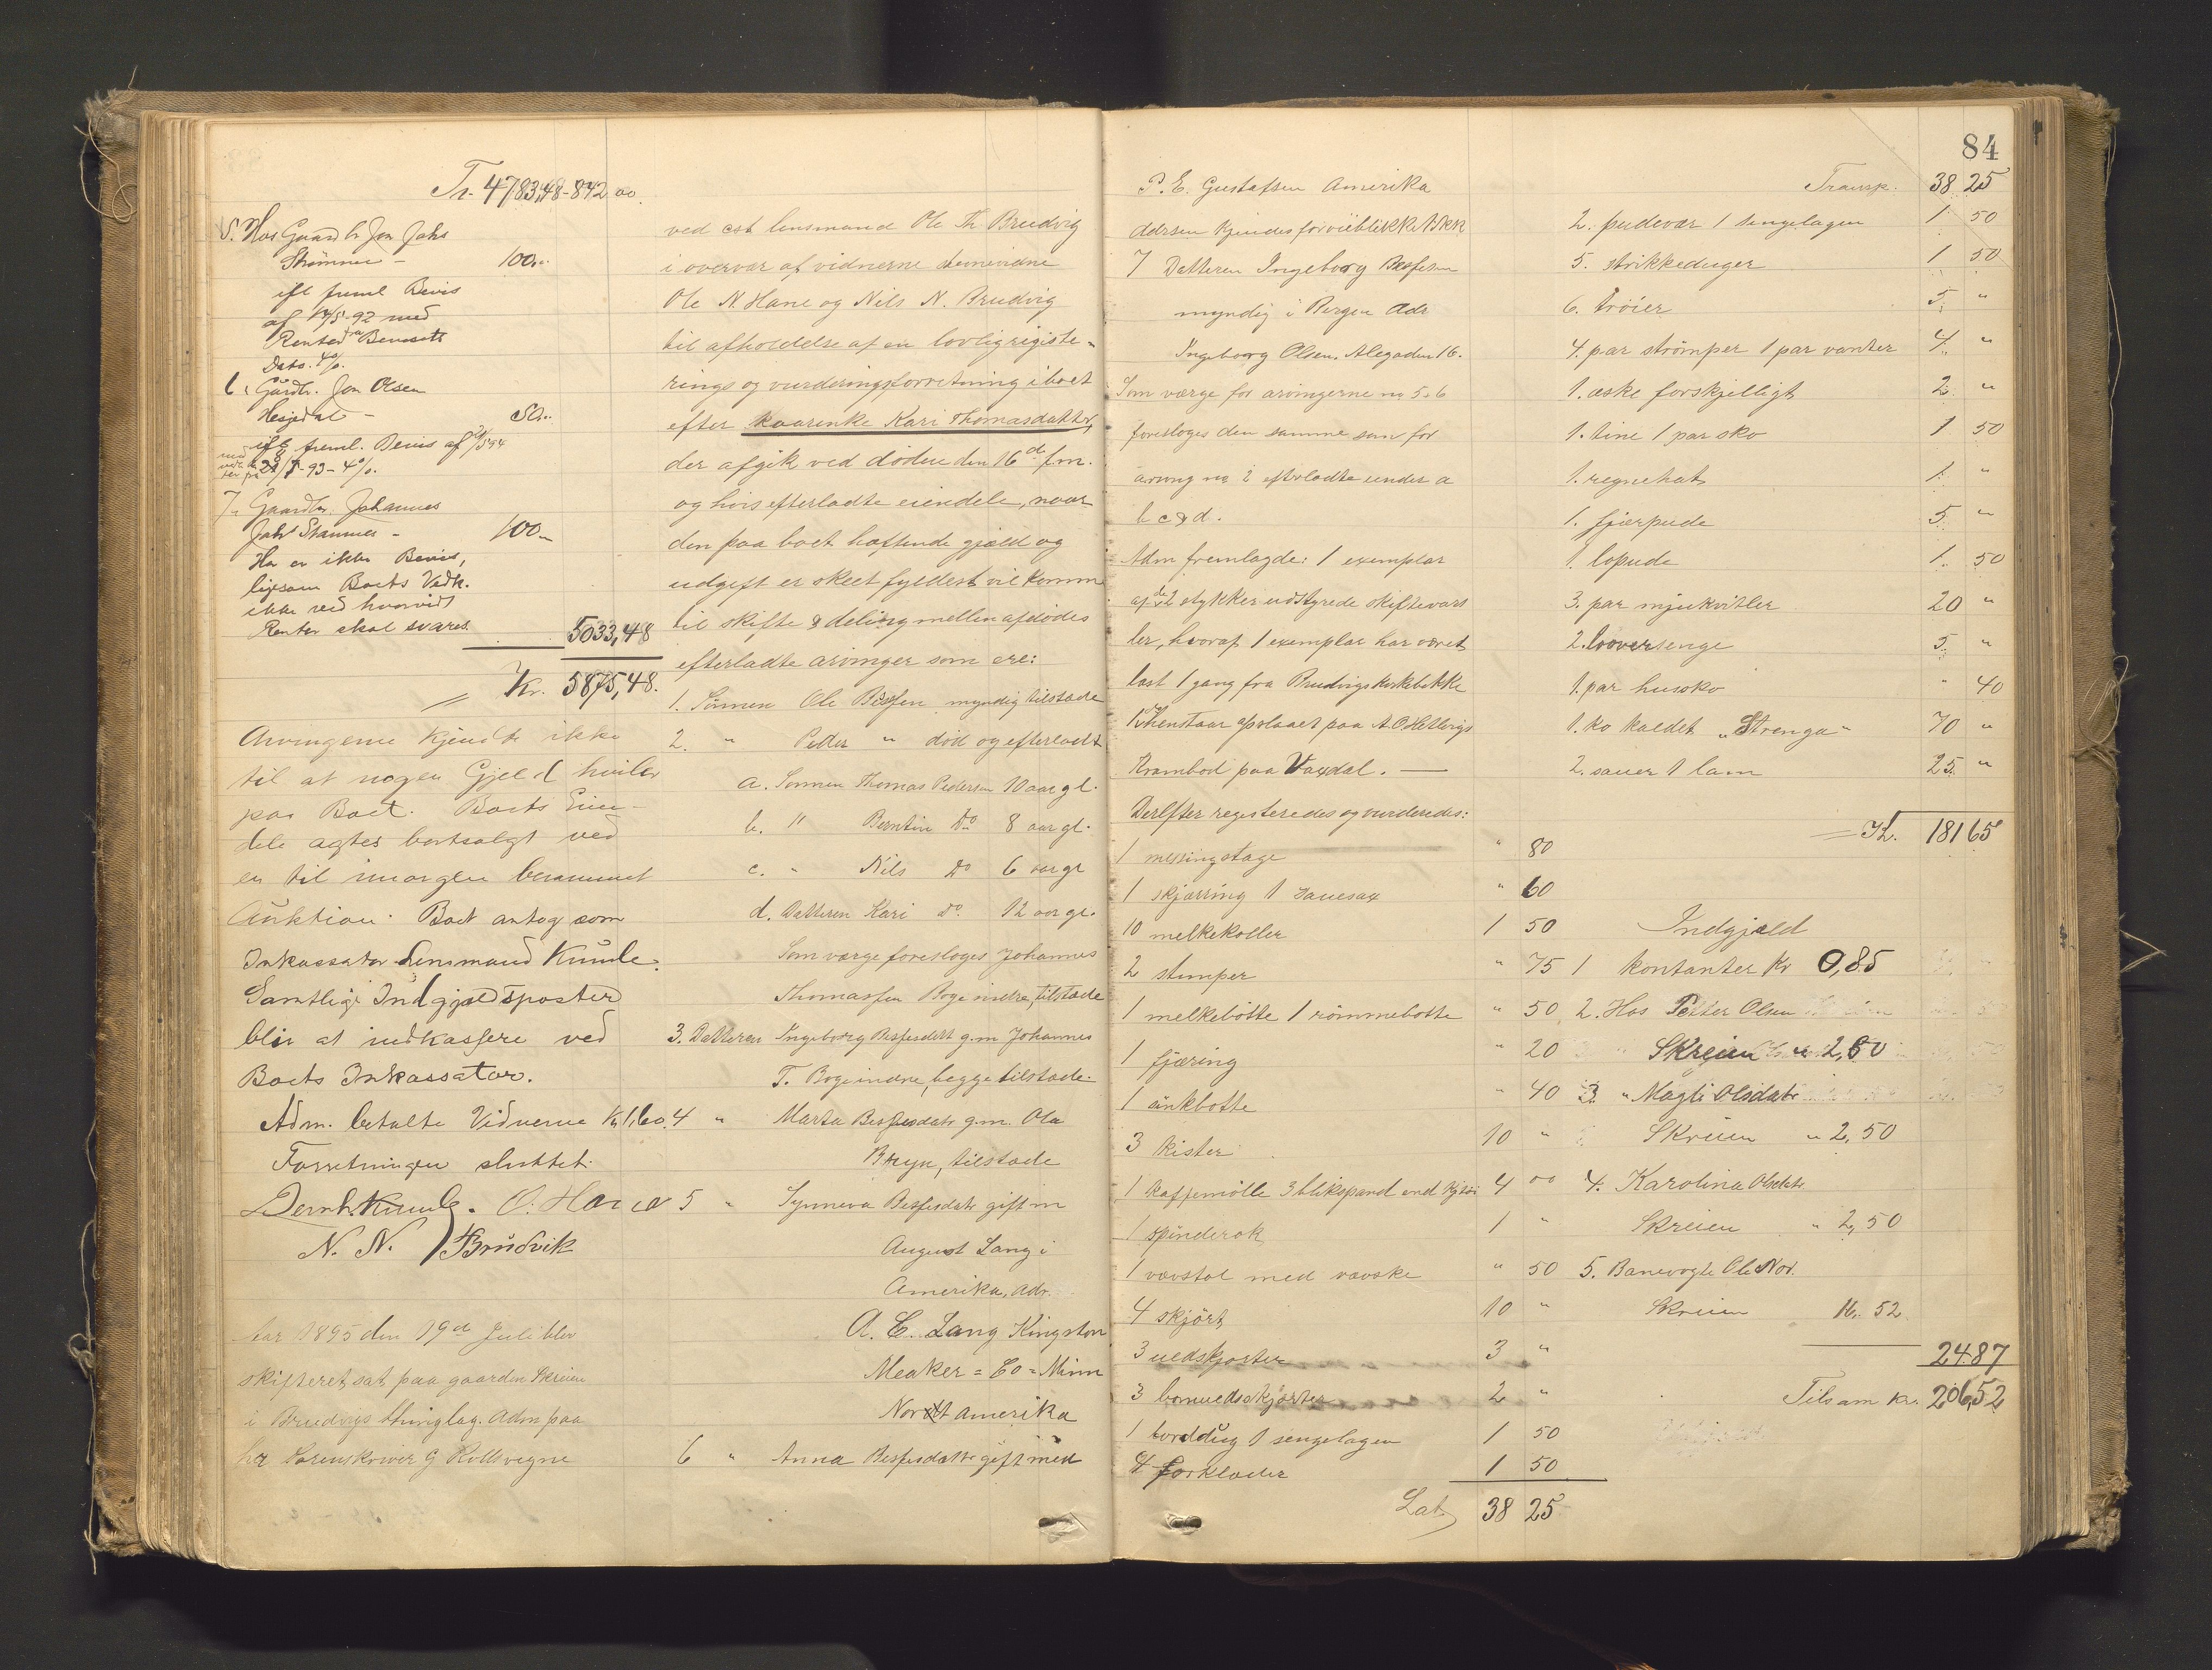 Tr. 4783,48 - 842,00.
5. Hos Gaardbr Jon Johs
Stammes - 100,..
ifl freml Bevis
af 14/5-92 med
Renter fra Bevisets
Dato. 4%.
6. Gårdbr. Jon Olsen
Hesjedal - 50,..
ifl freml. Bevis af
21/5-93 - 4%.
7. Gaardbr. Johannes
Johs Stammes - 100,-
Her er ikke Bevis,
ligesom Boets Vedk.
ikke ved hvorvidt
Renter skal svares.
5033,48
Kr. 5875,48.
Arvingerne kjendte ikke
til at nogen Gjeld hviler
paa Boet. Boets Eien-
dele agtes bortsolgt ved
en til imorgen berammet
Auktion. Boet antog som
Inkassator Lensmand Kunle.
Samtlige Indgjældsposter
blir at indkassere ved
Boets Inkassator.
Adm. betalte Vidnerne Kr 1,60.
Forretningen sluttet.
Bernh. Kunle. O. Hane
N. N. Brudvik
Aar 1895 den 19de Juli blev
skifteret sat paa gaarden Skreien
i Brudvigs thinglag. Adm paa
hr Sorenskriver G Kollsvegne
ved cst lensmand Ole Th Brudvig
i overvær af vidnerne
Ole N. Hane og Nils N. Brudvig
til afholdelse af en lovlig registe-
rings og vurderingsforretning i boet
efter kaarenke Kari Thomasdatter,
der afgik ved døden den 16de f.m.
og hvis efterladte eiendele, naar
den paa boet hæftende gjæld og
udgift er skeet fyldest vil komme
til skifte & deling mellem afdødes
efterladte arvinger som ere:
1. Sønnen Ole Besfesen myndig tilstæde
2. " Peder " død og efterladt
a. Sønnen Thomas Pedersen 10 aar gl.
b. " Berntin Do 8 aar gl.
c. " Nils Do 6 aar gl
d. Datteren Kari Do. 12 aar gl.
Som værge foresloges Johannes
Thomassen Boge indre, tilstæde
3. Datteren Ingeborg Besfesdatt g.m Johannes
T. Boge indre, begge tilstæde.
4 " Marta Besfesdatr g.m. Ola
Bryn, tilstæde
5 " Synneva Besfesdatr gift m
August Lang i
Amerika, adr.
A. E. Lang Kingston
Meaker = Co = Minn
Nordt Amerika
6 " Anna Besfesdatr gift med
84
P. E. Gustafsen Amerika
7 Datteren Ingeborg Besfesen
myndig i Bergen Adr
Ingeborg Olsen. Alegaden 16.
Som værge for arvingerne no 5 & 6
foresloges den samme som for
arving no 2 efterladte under a
b c & d.
Adm fremlagde: 1 exemplar
af de 2 stykker udstyrede skiftevars
ler, hvoraf 1 exemplar har været
læst 1 gang fra Brudvigs kirkebakke
Krambod paa Vaxdal. —
Derefter registeredes og vurderedes:
1 messingstage " 80
1 skjæring 1 sauesax " 60
10 melkekoller 1 50
2 stamper " 75
1 melkebøtte 1 rømmebøtte " 50
1 fjæring " 20
1 ankbøtte " 40
3 kister 10 "
1 kaffemølle 3 blikspand 4 00
1 spinderok 1 "
1 vævstol med vævske " 50
4 skjørt 10 "
3 uldskjorter 3 "
3 bomuldsskjorter 2 "
1 borddug 1 sengelagen 1 50
4 forklæder 1 50
Lat. 38 25
Transp. 38 25
2. pudevar 1 sengelagen 1 50
5. strikkeduger 1 50
6. trøier 5 "
4. par strømper 1 par vanter 4 "
1. æske forskjelligt 2 "
1. tine 1 par sko 1 50
1. regnehat 1 "
1. fjærpude 5 "
1. lopude 1 50
3. par mjukvitler 20 "
2. looversenge 5 "
1. par husoko " 40
1. ko kaldet „Strenga" 70 "
2. sauer 1 lam 25 "
Kr. 181 65
Indgjæld
1 kontanter Kr 0,85
2. Hos Peter Olsen
Skreien " 2,50
3. " Magli Olsdatr
Skreien " 2,50
4. Karolina Olsdatr
Skreien " 2,50
5. Banevogte Ole Nor.
Skreien 16. 52
24 87
Tilsam Kr. 206,52